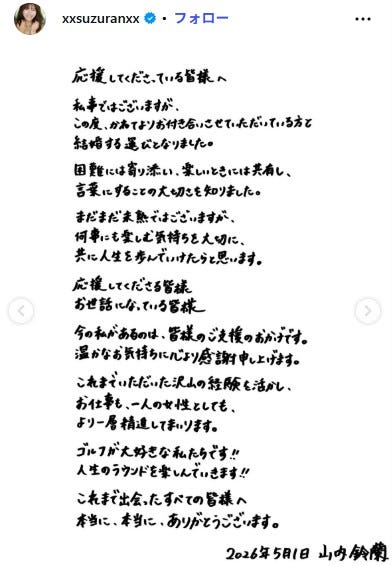 xxsuzuranxx • フォロー
応援してくださっている皆様へ
私事ではございますが、
この度、かねてよりお付き合いさせていただいている方と
結婚する運びとなりました。
困難には寄り添い、楽しいときには共有し、
言葉にすることの大切さを知りました。
まだまだ未熟ではございますが、
何事にも楽しむ気持ちを大切に、
共に人生を歩んでいけたらと思います。
応援してくださる皆様
お世話になっている皆様
今の私があるのは、皆様のご支援のおかげです。
温かなお気持ちに心より感謝申し上げます。
これまでいただいた沢山の経験を活かし、
お仕事も、一人の女性としても、
より一層精進してまいります。
ゴルフが大好きな私たちです!!
人生のラウンドを楽しんでいきます!!
これまで出会ったすべての皆様へ
本当に、本当に、ありがとうございます。
2026年5月1日 山内鈴蘭